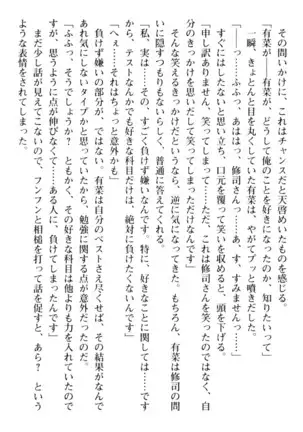 その問いかけに、これはチャンスだと天啓めいたものを感じる。
「有菜が――有菜が、どうして俺のことを好きになったのか、知りたいって」
一瞬、きょとんと目を丸くしていた有菜は、やがてプっと噴きだした。
「――っ……ふっ、あははっ、修司さんっ……あ、す、すみませんっ……」
すぐにはしたないと思い立ち、口元を覆って笑いを収めると、頭を下げる。
「申し訳ありません、笑ってしまって……ただ、これは修司さんを笑ったのではなく、自
分のきっかけを思いだして笑ってしまっただけなんです」
そんな笑えるきっかけだというなら、逆に気になってきた。もちろん、有菜は修司の問
いに隠すつもりもないらしく、普通に答えてくれる。
「私、実は……その、すごく負けず嫌いなんです。特に、好きなことに関しては……です
から、テストなんかでも好きな科目だけは、絶対に負けたくないんです」
「へぇ……それはちょっと意外かも」
負けず嫌いの部分が、ではない。有菜は自分のベストさえ尽くせば、その結果がなんで
あれ気にしないタイプかと思っていたから、勉強に関する点が意外だったのだ。
「ふふっ、そうでしょうか？　ともかく、その好きな科目は他よりも力を入れていたので
すが、思うように点が伸びなくて……ある人に、負けてしまったんです」
まだ少し話が見えてこないので、フンフンと相槌を打って話を促すと、あら？　という
ような表情をされてしまった。